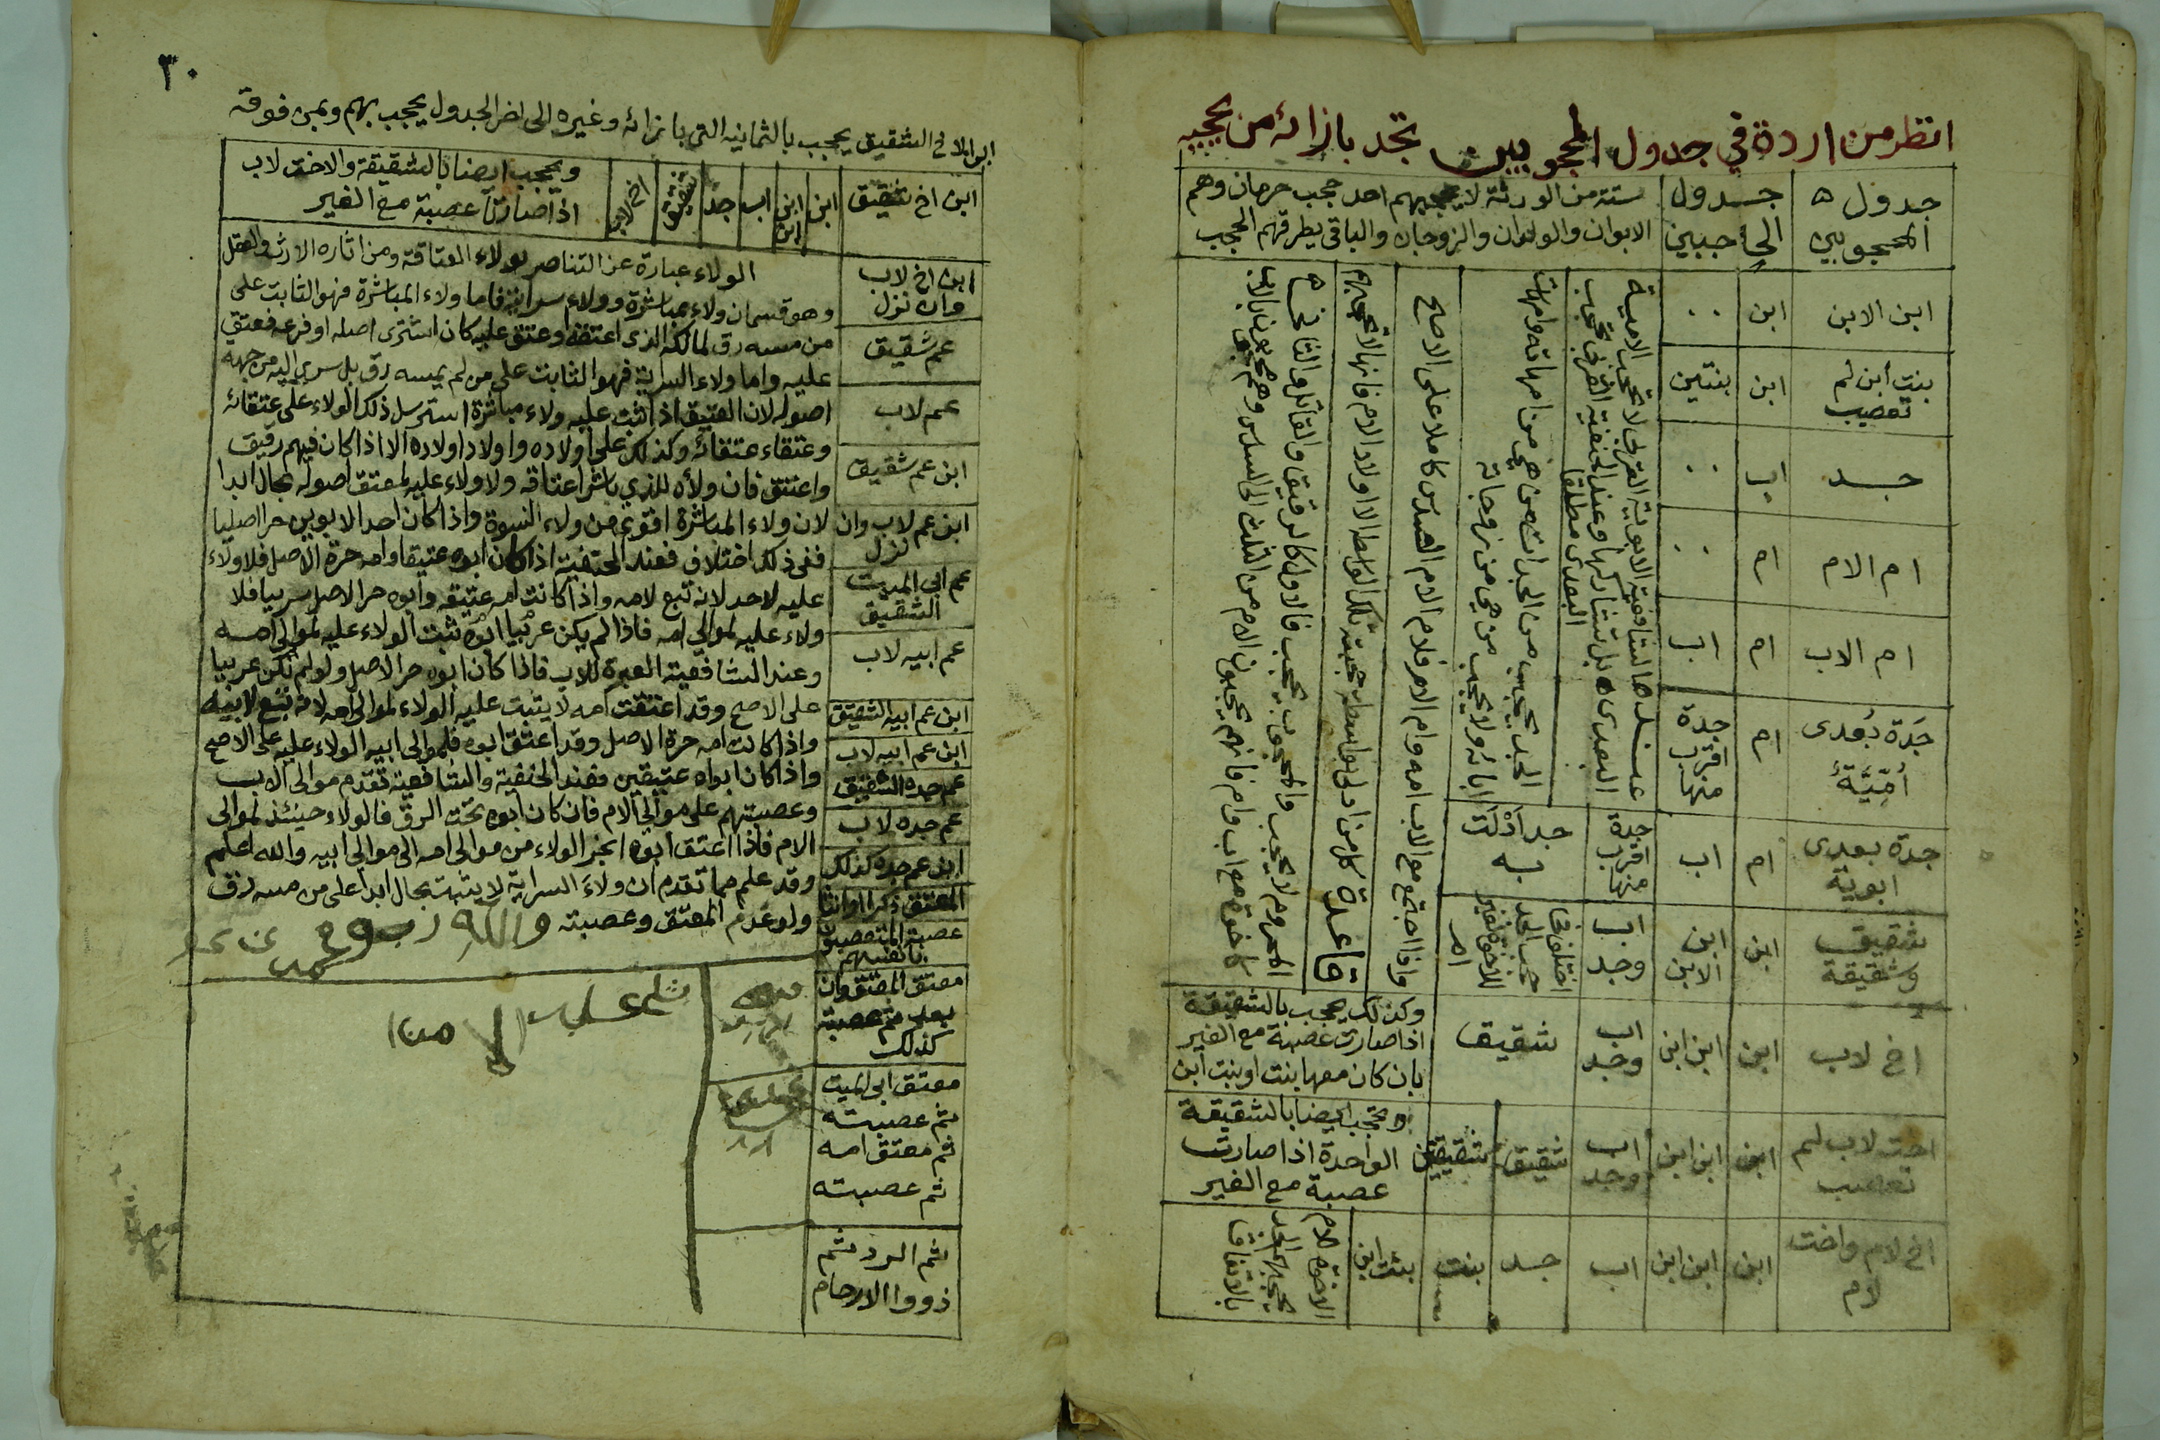 انظر من اردة في جدول المحجوبين تجد بازائه من يحجبه
جدول المحجوبين
جدول الحاجبين
ستة من الورثة لا يحجبهم احد حجب حرمان وهم
الابوان والولدان والزوجان والباقي يطرقهم الحجب
ابن الابن
ابن
٠٠
بنت ابن لم تعصب
ابن
بنتين
جد
اب
٠٠
ام الام
ام
٠٠
ام الاب
ام
اب
جَدة بُعدى أُمِّيَّةٌ
ام
جدة قربى منها
جدة بعدى ابوية
ام
اب
جدة اقرب منها
جد أدْلَت به
شقيق وشقيقة
ابن
ابن الابن
اب وجد
اخ لاب
ابن
ابن ابن
اب وجد
شقيق
وكذلك يحجب بالشقيقة
اذا صارت عصبة مع الغير
بان كان معها بنت او بنت ابن
اخت لاب لم تعصب
ابن
ابن ابن
اب وجد
شقيق
شقيقتين
وتحجب ايضا بالشقيقة
الواحدة اذا صارت
عصبة مع الغير
اخ لام واخت لام
ابن
ابن ابن
اب
جد
بنت
بنت ابن
الاخوة للام
يحجبهم الجد
بالاتفاق
عند الشافعية الابوية القربى لا تحجب الامية
البعدى بل تشاركها وعند الحنفية القربى تحجب
البعدى مطلقا
الجد يحجب من الجدات من هي من امهاته وامهات
ابائه ولا يحجب من هي من زوجاته
واذا اجتمع مع الاب امه وام الام فلام الام السدس كاملا على الاصح
قاعدة كل من ادلى بواسطة حجبته تلك الواسطة الا اولاد الام فانها لا تحجبهم
المحروم لا يحجب والمحجوب يحجب فالاول كالرقيق والقاتل والثاني
كاخوة مع اب وام فانهم يحجبون الام من الثلث الى السدس وهم محجوبون بالاب
٣٠
ابن الاخ الشقيق يحجب بالثمانية التي بازائه وغيره الى اخر الجدول يحجب بهم وبمن فوقه
ابن اخ شقيق
ابن
ابن ابن
اب
جد
شقيق
اخ لاب
ويحجب ايضا بالشقيقة والاخت لاب
اذا صارتا عصبة مع الغير
ابن اخ لاب وان نزل
عم شقيق
عم لاب
ابن عم شقيق
ابن عم لاب وان نزل
عم ابي الميت الشقيق
عم ابيه لاب
ابن عم ابيه الشقيق
ابن عم ابيه لاب
عم جده الشقيق
عم جده لاب
ابن عم جده كذلك
المعتق ذكرا او انثى
عصبة المتعصبون بانفسهم
معتق المعتق وان
بعد ثم عصبته
كذلك
معتق ابي الميت
ثم عصبته
ثم معتق امه
ثم عصبته
ثم الرد ثم
ذووا الارحام
الولاء عبارة عن التناصر بولاء العتاقة ومن اثاره الارث والعقل
وهو قسمان ولاء مباشرة وولاء سراية فاما ولاء المباشرة فهو الثابت على
من مسه رق لمالكه الذي اعتقه او عتق عليه كان اشترى اصله او فرعه فعتق
عليه واما ولاء السراية فهو الثابت على من لم يمسه رق بل سرى اليه من جهة
اصوله لان العتيق اذا ثبت عليه ولاء مباشرة استرسل ذلك الولاء على عتقائه
وعتقاء عتقائه وكذلك على اولاده واولاد اولاده الا اذا كان فيهم رقيق
واعتق فان ولاه للذي باشر اعتاقه ولا ولاء عليه لمعتق اصوله بحال ابدا
لان ولاء المباشرة اقوى من ولاء النسوة واذا كان احد الابوين حر اصليا
ففي ذلك اختلاف فعند الحنفية اذا كان ابوه عتيقا وامه حرة الاصل فلا ولاء
عليه لاحد لانه تبع لامه واذا كانت امه عتيقه وابوه حر الاصل عربيا فلا
ولاء عليه لموالي امه فاذا لم يكن عربيا ابوه ثبت الولاء عليه لموالي امه
وعند الشافعية العبرة للاب فاذا كان ابوه حر الاصل ولو لم تكن عربيا
على الاصح وقد اعتقت امه لا يثبت عليه الولاء لموالي امه لانه تبع لابيه
واذا كانت امه حرة الاصل وقد اعتق ابوه فلموالي ابيه الولاء عليه على الاصح
واذا كان ابواه عتيقين فعند الحنفية والشافعية تقدم موالى الاب
وعصبتهم على موالي الام فان كان ابوه تحت الرق فالولاء حينئذ لموالى
الام فاذا اعتق ابوه انجر الولاء من موالى امه الى موالي ابيه والله اعلم
وقد علم مما تقدم ان ولاء السراية لا يثبت بحال ابدا على من مسه رق
ولو عُدم المعتق وعصبته والله